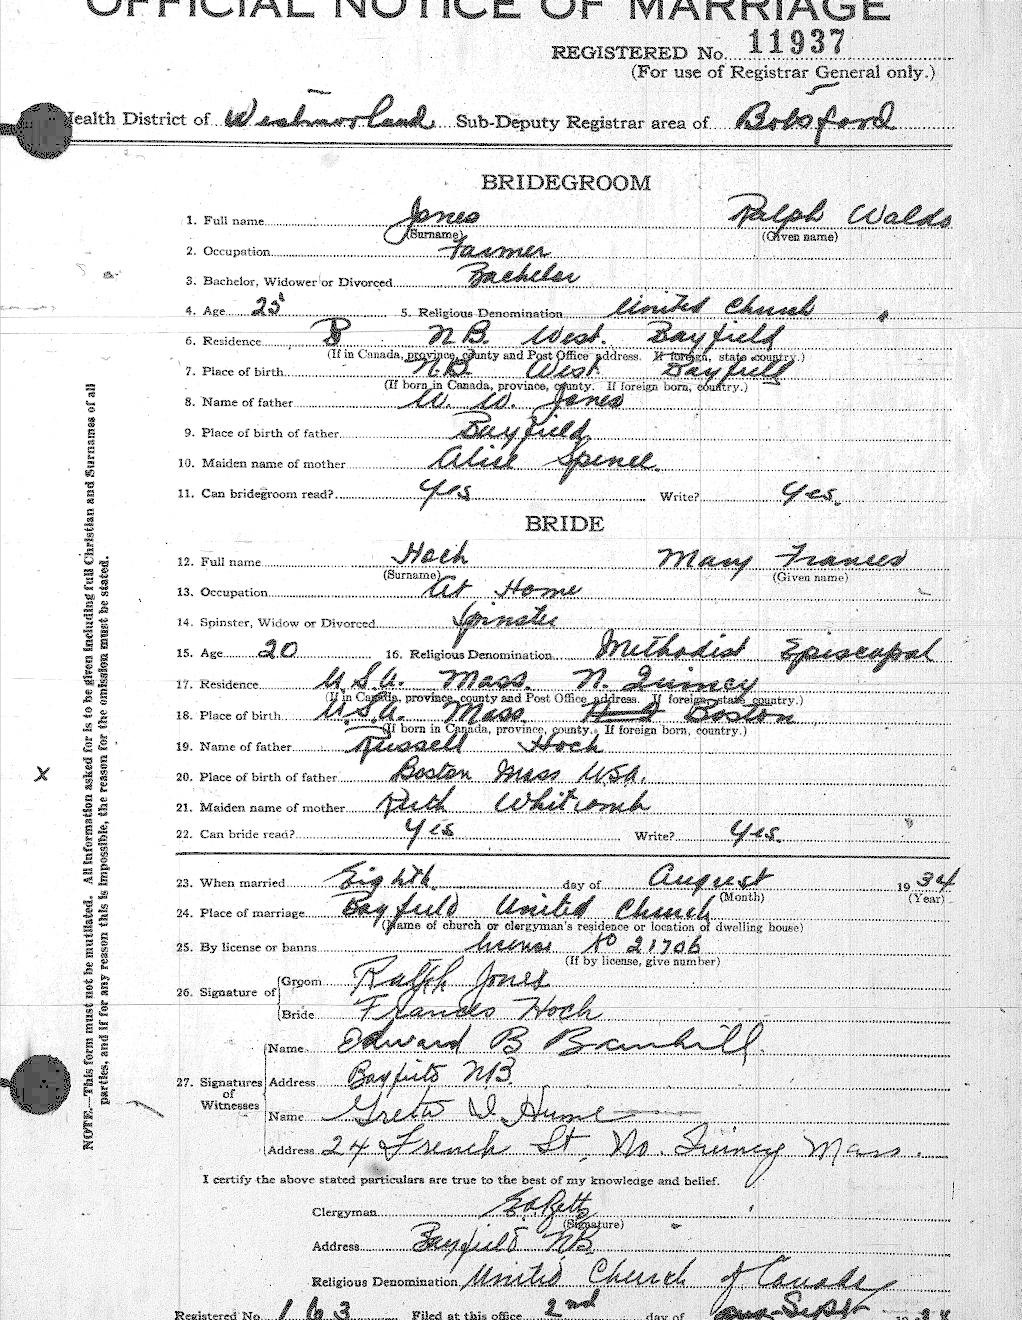 OFFICIAL NOTICE OF MARRIAGE
REGISTERED No. 11937
(For use of Registrar General only.)
Health District of Westmorland. Sub-Deputy Registrar area of Botsford
BRIDEGROOM
1. Full name Jones Ralph Waldo
(Surname) (Given name)
2. Occupation Farmer
3. Bachelor, Widower or Divorced Bachelor
4. Age 25 5. Religious Denomination United Church
6. Residence N.B. West. Bayfield
(If in Canada, province, county and Post Office address. If foreign, state country.)
7. Place of birth N.B. West. Bayfield
(If born in Canada, province, county. If foreign born, country.)
8. Name of father W. W. Jones
9. Place of birth of father Bayfield
10. Maiden name of mother Alice Spence.
11. Can bridegroom read? Yes Write? Yes.
BRIDE
12. Full name Hoch Mary Frances
(Surname) (Given name)
13. Occupation At Home
14. Spinster, Widow or Divorced Spinster
15. Age 20 16. Religious Denomination Methodist Episcopal
17. Residence U.S.A. Mass. N. Quincy
(If in Canada, province, county and Post Office address. If foreign, state country.)
18. Place of birth U.S.A. Mass. Boston
(If born in Canada, province, county. If foreign born, country.)
19. Name of father Russell Hoch
20. Place of birth of father Boston Mass USA.
21. Maiden name of mother Ruth Whitcomb
22. Can bride read? Yes Write? Yes.
23. When married Eighth day of August 1934
(Month) (Year)
24. Place of marriage Bayfield United Church
(Name of church or clergyman's residence or location of dwelling house)
25. By license or banns license No 21706
(If by license, give number)
26. Signature of Groom Ralph Jones
Bride Frances Hoch
27. Signatures of Witnesses
Name Edward B Barnhill.
Address Bayfield NB.
Name Greta D. Hume
Address 24 French St, No. Quincy Mass.
I certify the above stated particulars are true to the best of my knowledge and belief.
Clergyman
(Signature)
Address Bayfield NB.
Religious Denomination United Church of Canada
Registered No. 163 Filed at this office 2nd day of Sept 19
NOTE.—This form must not be mutilated. All information asked for is to be given including full Christian and Surnames of all
parties, and if for any reason this is impossible, the reason for the omission must be stated.
x